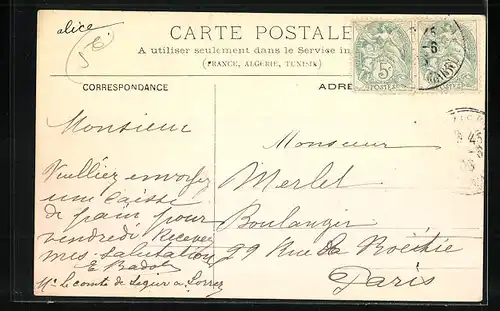 alice
5c
CARTE POSTALE
A utiliser seulement dans le Service in
(FRANCE, ALGERIE, TUNISIE)
5c
POSTES
POSTES
CORRESPONDANCE
ADRE
Monsieur
Vuilliez envoyer
une caisse
de pain pour
vendredi Recever
mes salutation
E Badol
Mr Le comte de Segur a Lorrez
Monsieur
Merlet
Boulanger
29 Rue de la Boëtie
Paris